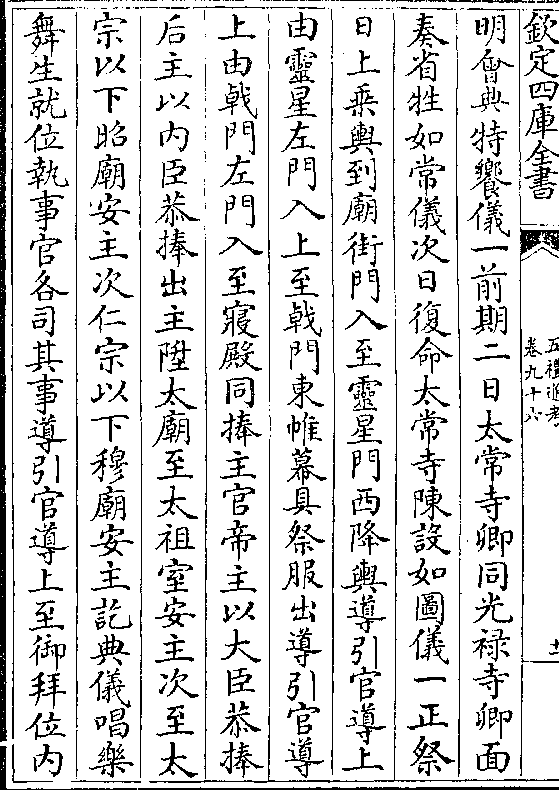 欽定四庫全書
五禮通考
卷九十六
明會典特饗儀一前期二日太常寺卿同光禄寺卿面
奏省牲如常儀次日復命太常寺陳設如圖儀一正祭
日上乘輿到廟街門入至靈星門西降輿導引官導上
由靈星左門入上至㦸門東帷幕具祭服出導引官導
上由㦸門左門入至寢殿同捧主官帝主以大臣恭捧
后主以内臣恭捧出主陞太廟至太祖室安主次至太
宗以下昭廟安主次仁宗以下穆廟安主訖典儀唱樂
舞生就位執事官各司其事導引官導上至御拜位内